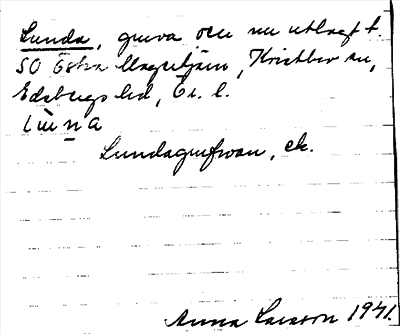 Lunda, gruva och nu utlagt t.
SO Östra Magsjötjärn, Kristbv sn,
Edsbergs hd, Ör. l.
lu̇n̲a
Lundagrufvan, ek.
Anna Larsson 1941.